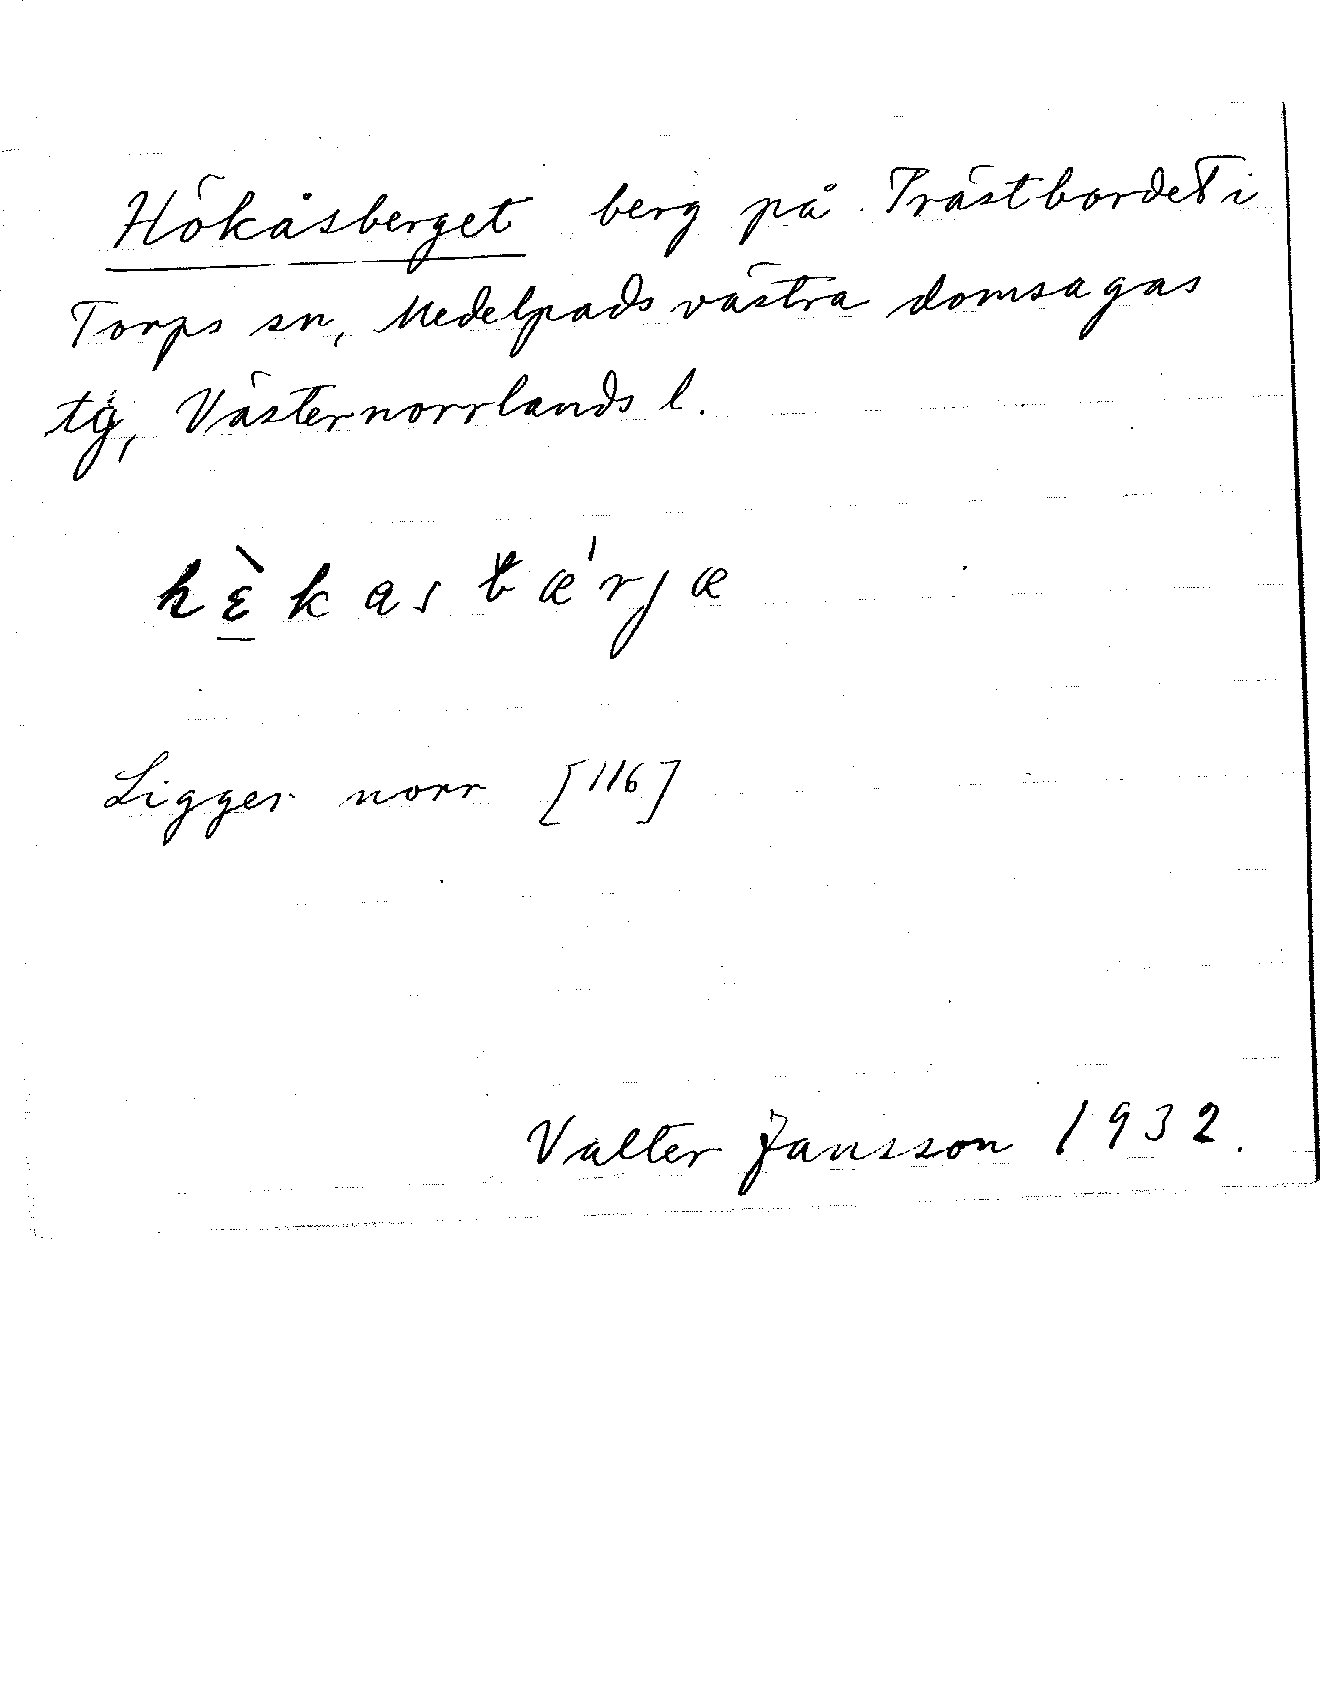 Hökåsberget berg på Prästbordet i
Torps sn, Medelpads västra domsagas
tg, Västernorrlands l.
hɛ̀kasbæ'rjæ
Ligger norr [116]
Valter Jansson 1932.